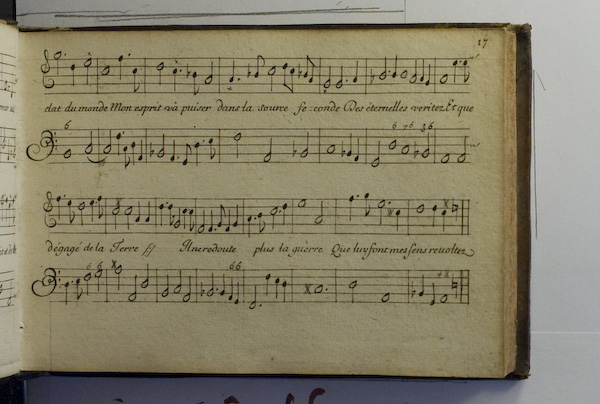 17
clat du monde Mon esprit và puiser dans la source fe : conde Des éternelles veritez Et que
6 6 76 36
dégagé de la Terre // Il ne redoute plus la guèrre Que luy font mes sens revoltez
6 6 x 66 x 4x